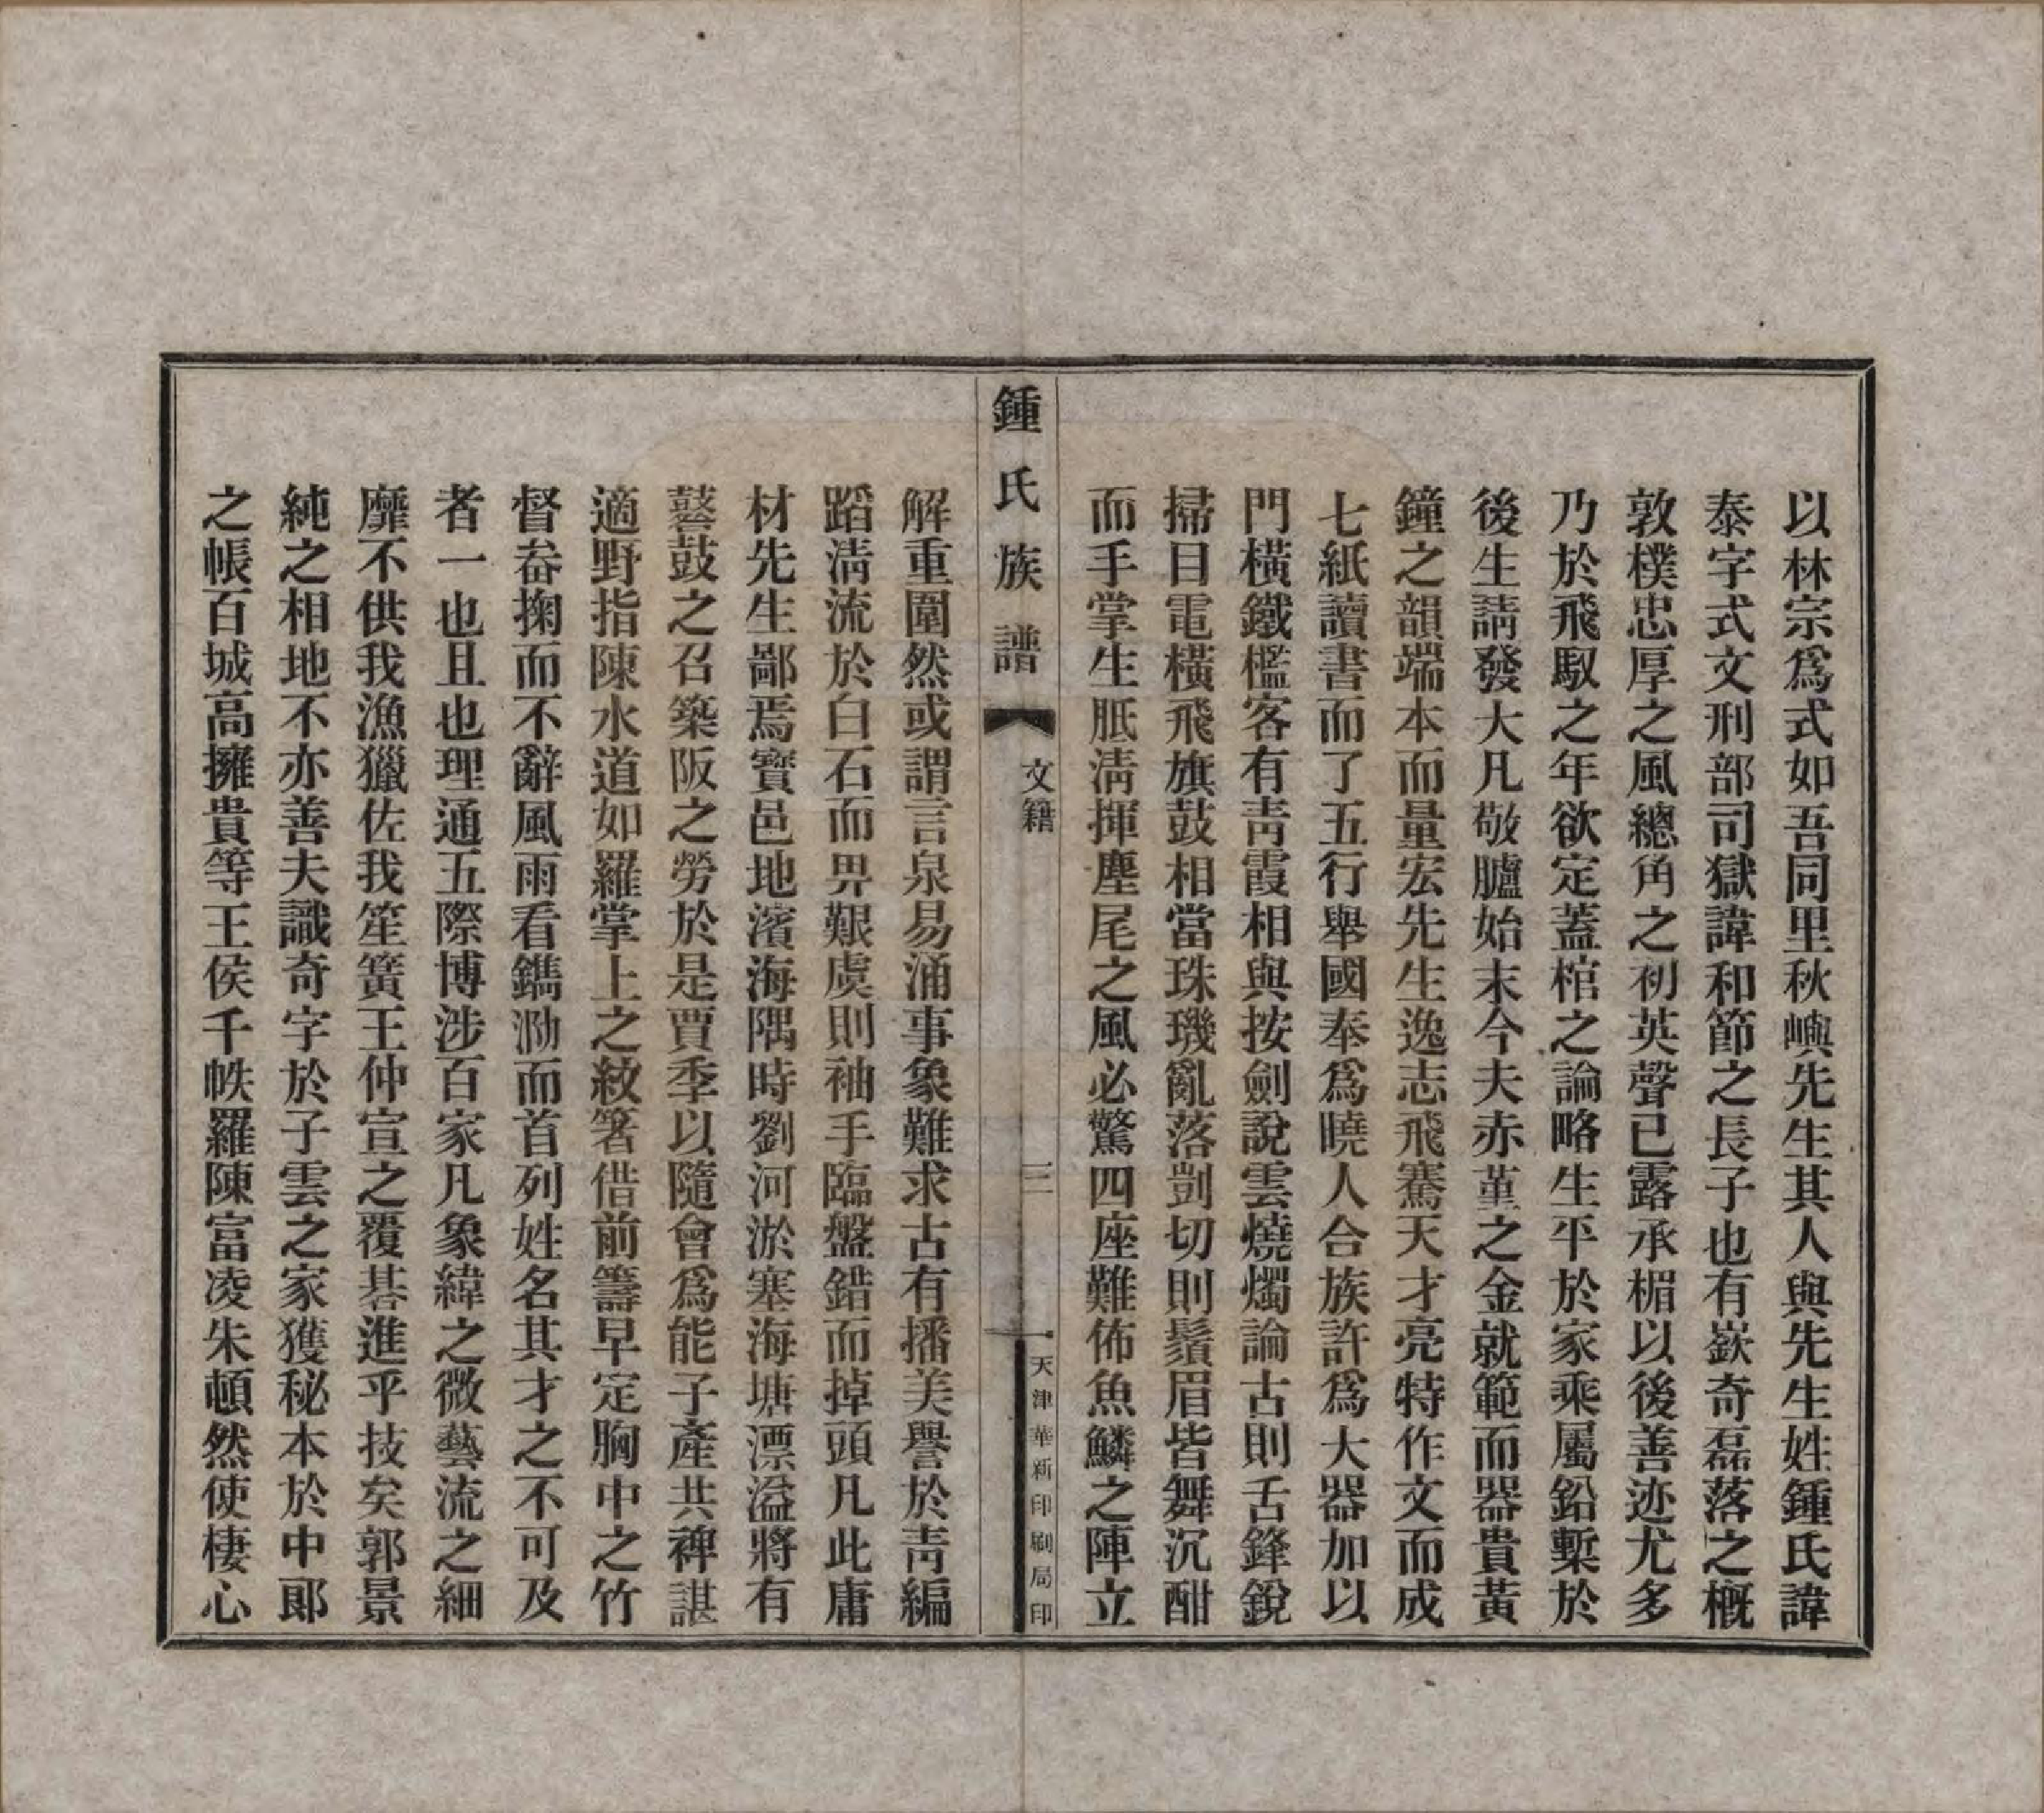 以林宗爲式如吾同里秋嶼先生其人與先生姓鍾氏諱
泰字式文刑部司獄諱和節之長子也有嶔奇磊落之概
敦樸忠厚之風總角之初英聲已露承楣以後善迹尤多
乃於飛馭之年欲定蓋棺之論略生平於家乘屬鉛槧於
後生請發大凡敬臚始末今夫赤堇之金就範而器貴黃
鐘之韻端本而量宏先生逸志飛騫天才亮特作文而成
七紙讀書而了五行舉國奉爲曉人合族許爲大器加以
門橫鐵檻客有青霞相與按劍說雲燒燭論古則舌鋒銳
掃目電橫飛旗鼓相當珠璣亂落剴切則鬚眉皆舞沉酣
而手掌生胝淸揮塵尾之風必驚四座難佈魚鱗之陣立
鍾氏族譜
文籍
三
天津華新印刷局印
解重圍然或謂言泉易涌事象難求古有播美譽於靑編
蹈淸流於白石而畀艱虞則袖手臨盤錯而掉頭凡此庸
材先生鄙焉寶邑地濱海隅時劉河淤塞海塘漂溢將有
鼛鼓之召築阪之勞於是賈季以隨會爲能子產共裨諶
適野指陳水道如羅掌上之紋箸借前籌早定胸中之竹
督畚掬而不辭風雨看鐫泐而首列姓名其才之不可及
者一也且也理通五際博涉百家凡象緯之微藝流之細
靡不供我漁獵佐我笙簧王仲宣之覆棊進乎技矣郭景
純之相地不亦善夫識奇字於子雲之家獲秘本於中郞
之帳百城高擁貴等王侯千帙羅陳富凌朱頓然使棲心